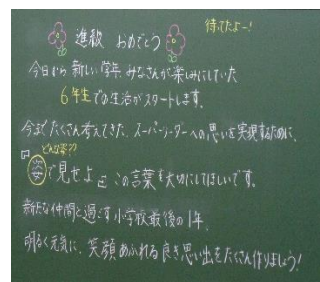 待ってたよー!
進級 おめでとう
今日から新しい学年、みなさんが楽しみにしていた
6年生での生活がスタートします。
今までたくさん考えてきた、スーパーリーダーへの思いを実現するために、
どんな姿??
『姿で見せよ』この言葉を大切にしてほしいです。
新たな仲間と過ごす小学校最後の1年、
明るく元気に、笑顔あふれる良き思い出をたくさん作りましょう!